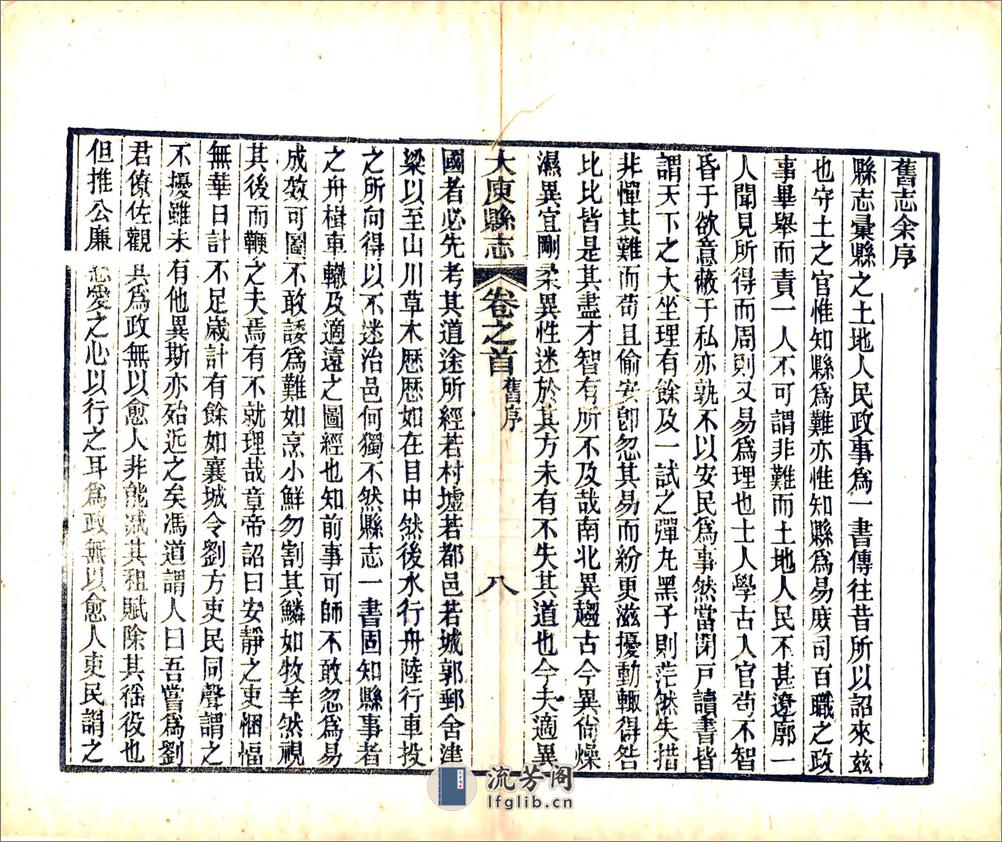 舊志余序
縣志彙縣之土地人民政事爲一書傳往昔所以詔來玆
也守土之官惟知縣爲難亦惟知縣爲易庶司百職之政
事畢舉而責一人不可謂非難而土地人民不甚遼廓一
人聞見所得而周則又易爲理也士人學古入官苟不智
昏于欲意蔽于私亦孰不以安民爲事然當閉戸讀書皆
謂天下之大坐理有餘及一試之彈丸黑子則茫然失措
非憚其難而苟且偷安卽忽其易而紛更滋擾動輙得咎
比比皆是其盡才智有所不及哉南北異趨古今異尙燥
濕異宜剛柔異性迷於其方未有不失其道也今夫適異
大庾縣志 卷之首 舊序 八
國者必先考其道途所經若村墟若都邑若城郭郵舍津
梁以至山川草木歴歴如在目中然後水行舟陸行車投
之所向得以不迷治邑何獨不然縣志一書固知縣事者
之舟楫車轍及適遠之圖經也知前事可師不敢忽爲易
成效可圖不敢諉爲難如烹小鮮勿割其鱗如牧羊然視
其後而鞭之夫焉有不就理哉章帝詔曰安靜之吏悃愊
無華日計不足歳計有餘如襄城令劉方吏民同聲謂之
不擾雖未有他異斯亦殆近之矣馮道謂人曰吾嘗爲劉
君僚佐觀其爲政無以愈人非能減其租賦除其徭役也
但推公廉慈愛之心以行之耳爲政無以愈人吏民謂之
流芳阁
lfglib.cn